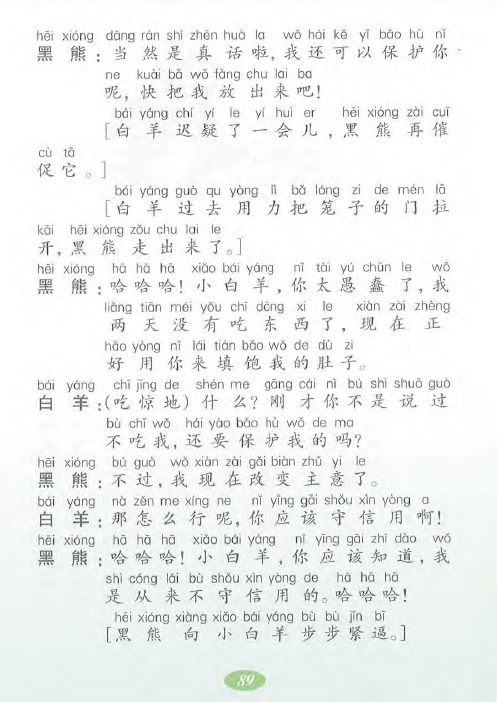 hēi xióng dāng rán shì zhēn huà la wǒ hái kě yǐ bǎo hù nǐ
黑 熊：当 然 是 真 话 啦，我 还 可 以 保 护 你
ne kuài bǎ wǒ fàng chu lai ba
呢，快 把 我 放 出 来 吧！
bái yáng chí yí le yí huì er hēi xióng zài cuī
[白 羊 迟 疑 了 一 会 儿，黑 熊 再 催
cù tā
促 它。]
bái yáng guò qu yòng lì bǎ lóng zi de mén lā
[白 羊 过 去 用 力 把 笼 子 的 门 拉
kāi hēi xióng zǒu chu lai le
开，黑 熊 走 出 来 了。]
hēi xióng hā hā hā xiǎo bái yáng nǐ tài yú chǔn le wǒ
黑 熊：哈 哈 哈！小 白 羊，你 太 愚 蠢 了，我
liǎng tiān méi yǒu chī dōng xi le xiàn zài zhèng
两 天 没 有 吃 东 西 了，现 在 正
hǎo yòng nǐ lái tián bǎo wǒ de dù zi
好 用 你 来 填 饱 我 的 肚 子。
bái yáng chī jīng de shén me gāng cái nǐ bú shì shuō guò
白 羊：（吃 惊 地）什 么？刚 才 你 不 是 说 过
bù chī wǒ hái yào bǎo hù wǒ de ma
不 吃 我，还 要 保 护 我 的 吗？
hēi xióng bú guò wǒ xiàn zài gǎi biàn zhǔ yi le
黑 熊：不 过，我 现 在 改 变 主 意 了。
bái yáng nà zěn me xíng ne nǐ yīng gāi shǒu xìn yòng a
白 羊：那 怎 么 行 呢，你 应 该 守 信 用 啊！
hēi xióng hā hā hā xiǎo bái yáng nǐ yīng gāi zhī dào wǒ
黑 熊：哈 哈 哈！小 白 羊，你 应 该 知 道，我
shì cóng lái bù shǒu xìn yòng de hā hā hā
是 从 来 不 守 信 用 的。哈 哈 哈！
hēi xióng xiàng xiǎo bái yáng bù bù jǐn bī
[黑 熊 向 小 白 羊 步 步 紧 逼。]
89